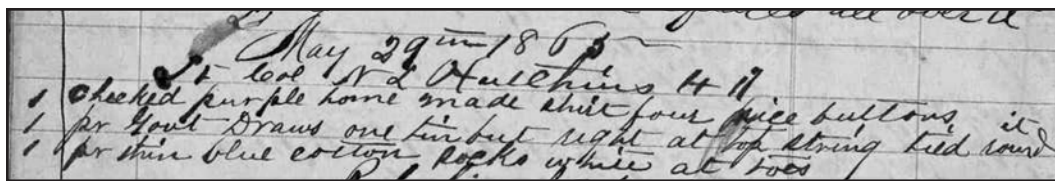 all over it
May 29th 1865
Lt Col N L Hutchins 47
1 checked purple home made shirt four nice buttons it
1 pr Gout Draws one tin but right at top string tied round
1 pr thin blue cotton socks white at toes